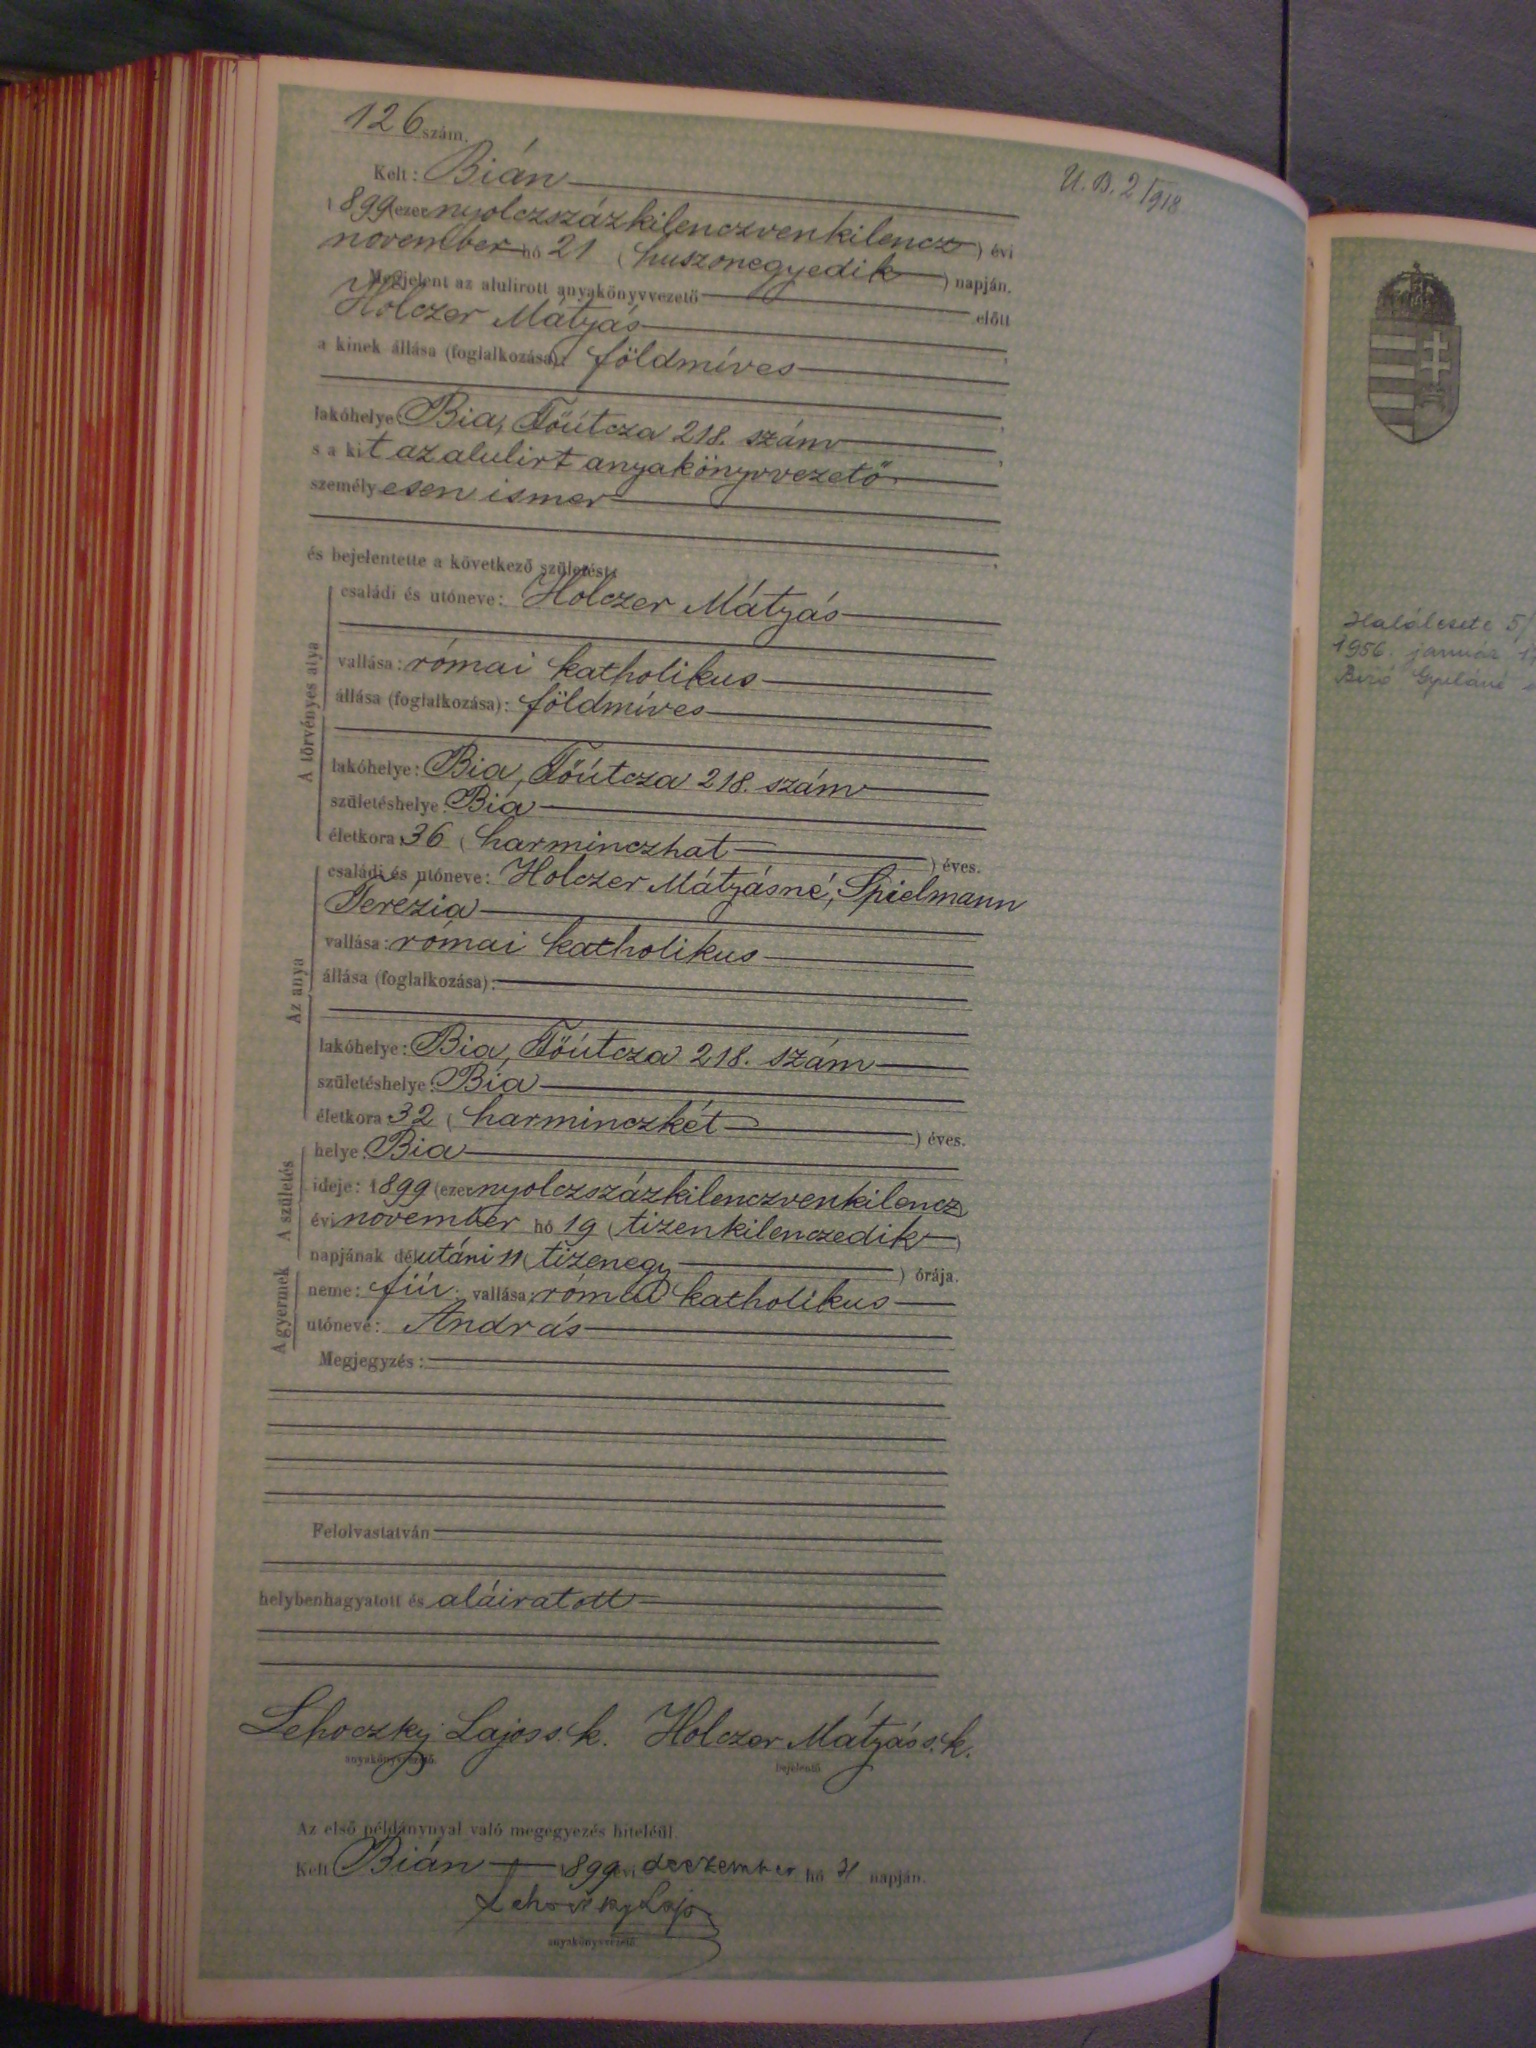 126 szám.
U. B. 2/918
Kelt: Bián
1899 (ezernyolczszázkilenczvenkilencz) évi
november hó 21 (huszonegyedik) napján.
Megjelent az alulirott anyakönyvvezető előtt
Holczer Mátyás
a kinek állása (foglalkozása): földmíves
lakóhelye: Bia, Főútcza 218. szám
s a kit az alulirt anyakönyvvezető
személyesen ismer
és bejelentette a következő születést:
A törvényes atya
családi és utóneve: Holczer Mátyás
vallása: római katholikus
állása (foglalkozása): földmíves
lakóhelye: Bia, Főútcza 218. szám
születéshelye Bia
életkora 36 (harminczhat) éves.
Az anya
családi és utóneve: Holczer Mátyásné, Spielmann
Terézia
vallása: római katholikus
állása (foglalkozása):
lakóhelye: Bia, Főútcza 218. szám
születéshelye: Bia
életkora 32 (harminczkét) éves.
A születés
helye: Bia
ideje: 1899 (ezernyolczszázkilenczvenkilencz)
évi november hó 19 (tizenkilenczedik)
napjának délutáni 11 (tizenegy) órája.
A gyermek
neme: fiú; vallása: római katholikus
utóneve: András
Megjegyzés:
Felolvastatván
helybenhagyatott és aláiratott
Lehoczky Lajos s. k. Holczer Mátyás s. k.
anyakönyvvezető. bejelentő
Az első példánynyal való megegyezés hiteléül.
Kelt Bián 1899 évi deczember hó 31 napján.
Lehoczky Lajos
anyakönyvvezető
Halálesete 5/
1956. január
Biró Gyuláné